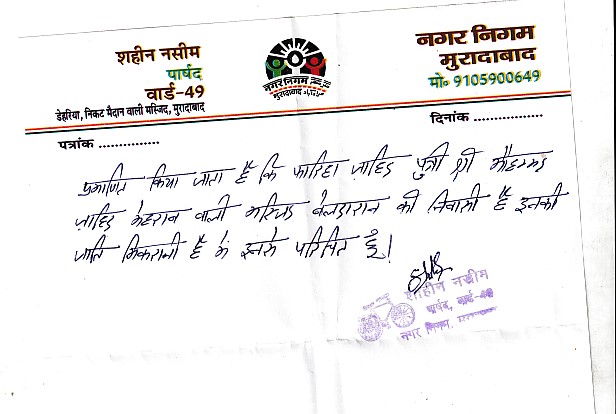 शहीन नसीम
पार्षद
वार्ड-49
डेहरिया, निकट मैदान वाली मस्जिद, मुरादाबाद
नगर निगम
मुरादाबाद
नगर निगम
मुरादाबाद
मो॰ 9105900649
पत्रांक ...............
दिनांक .................
प्रमाणित किया जाता है कि फारिहा ज़ाहिद पुत्री श्री मौहम्मद
ज़ाहिद मेहराब वाली मस्जिद बेलदारान की निवासी है इनकी
जाति मिकरानी है मै इनसे परिचित हूँ।
शाहीन नसीम
पार्षद, वार्ड-49
नगर निगम,